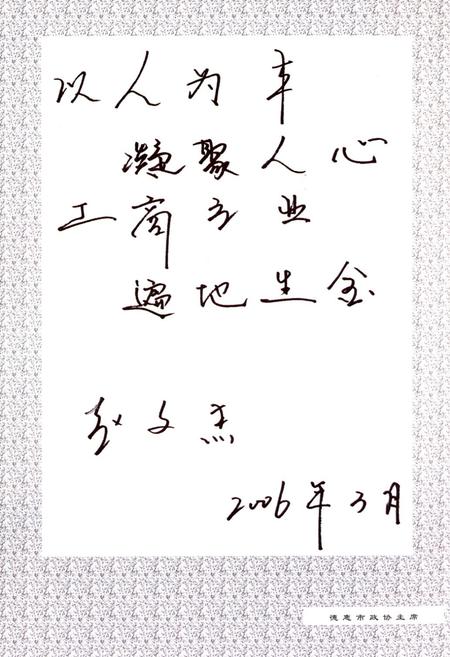 以人为本
凝聚人心
工商立业
遍地生金
赵文杰
2006年3月
德惠市政协主席